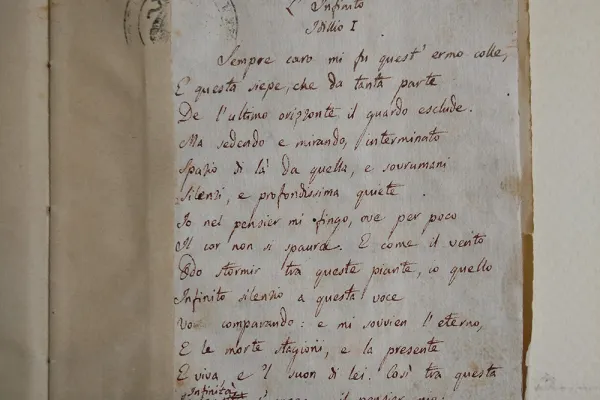 L' Infinito
Idillio I
Sempre caro mi fu quest' ermo colle,
E questa siepe, che da tanta parte
De l'ultimo orizzonte il guardo esclude.
Ma sedendo e mirando, interminato
Spazio di là da quella, e sovrumani
Silenzi, e profondissima quiete
Io nel pensier mi fingo, ove per poco
Il cor non si spaura. E come il vento
Odo stormir tra queste piante, io quello
Infinito silenzio a questa voce
Vo comparando: e mi sovvien l'eterno,
E le morte stagioni, e la presente
E viva, e 'l suon di lei. Così tra questa
Infinità
il pensier mio: